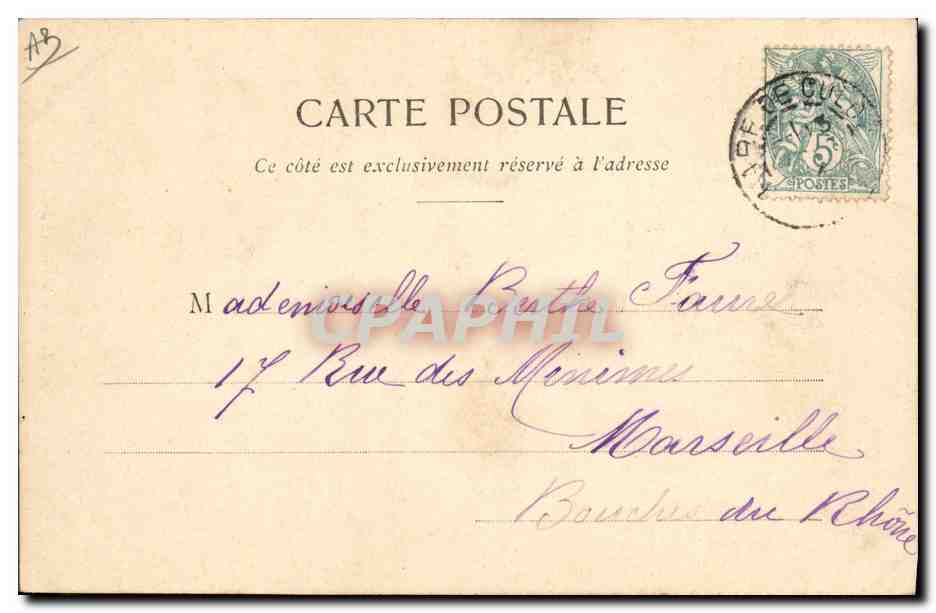 AB
CARTE POSTALE
Ce côté est exclusivement réservé à l'adresse
GARE DE CULOZ
5
POSTES
Mademoiselle Berthe Faure
CPAPHIL
17 Rue des Minimes
Marseille
Bouches du Rhône